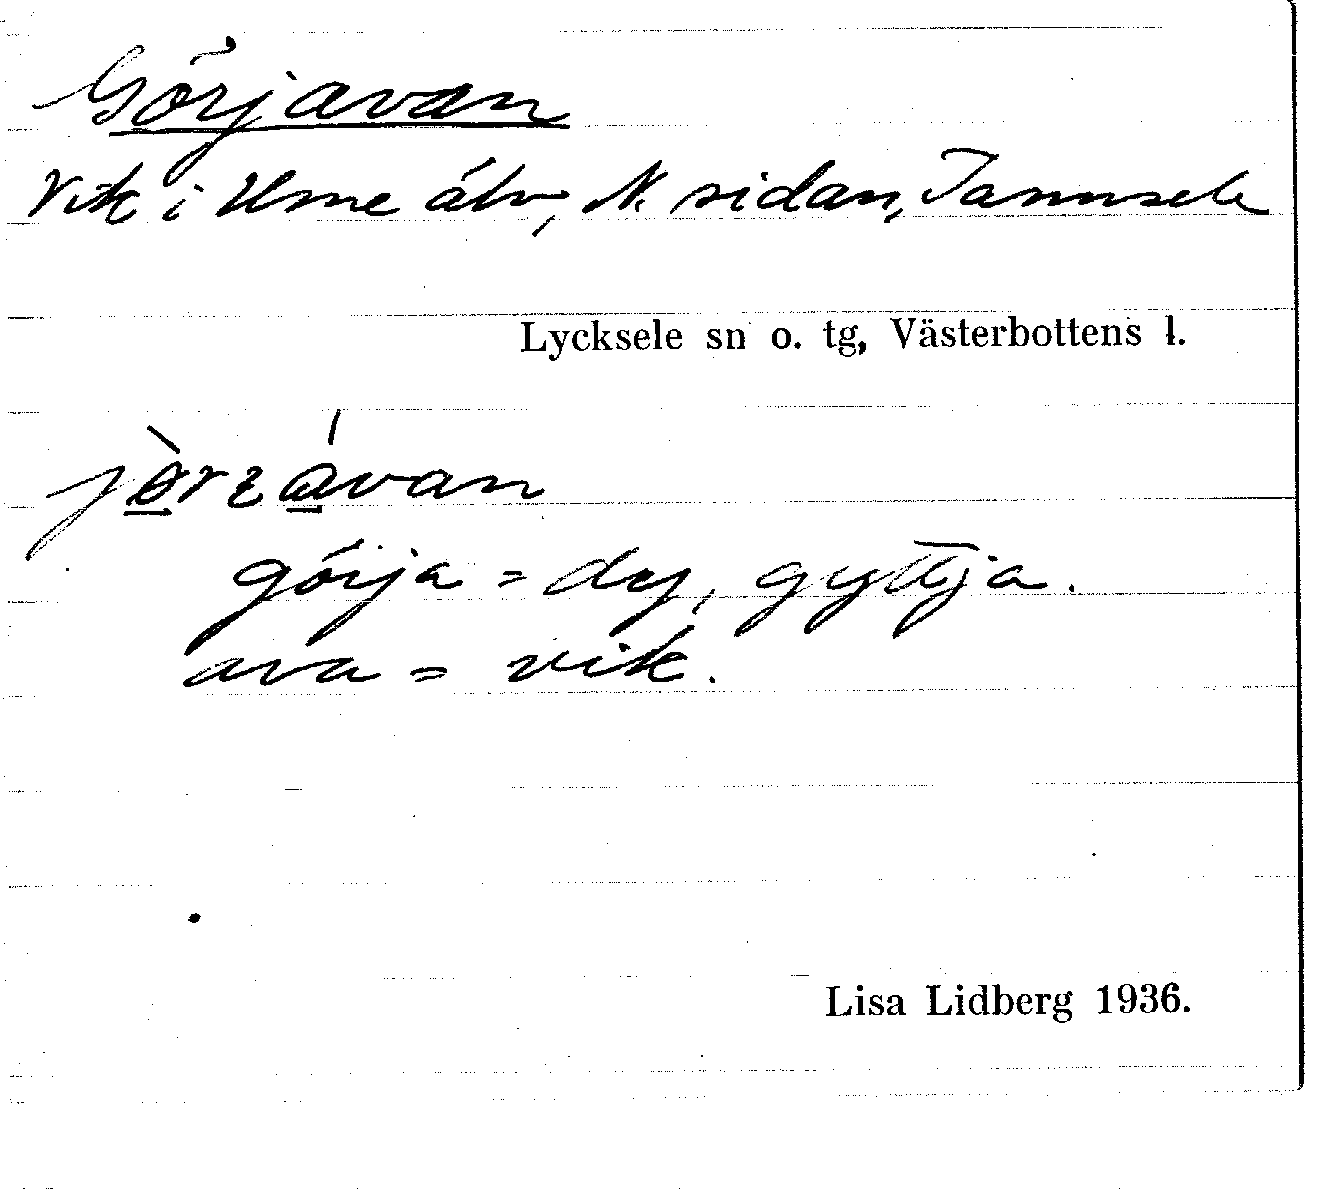 Görjavan
Vik i Ume älv, N. sidan, Tannsele
Lycksele sn o. tg, Västerbottens l.
görja = dy, gyttja.
ava = vik.
Lisa Lidberg 1936.